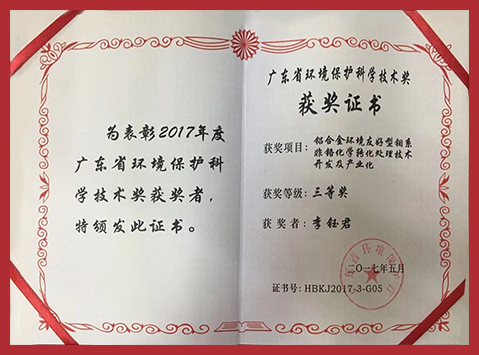 为表彰2017年度
广东省环境保护科
学技术奖获奖者，
特颁发此证书。
广东省环境保护科学技术奖
获奖证书
获奖项目：铝合金环境友好型钼系
非铬化学转化处理技术
开发及产业化
获奖等级：三等奖
获奖者：李钰君
二〇一七年五月
证书号：HBKJ2017-3-G05